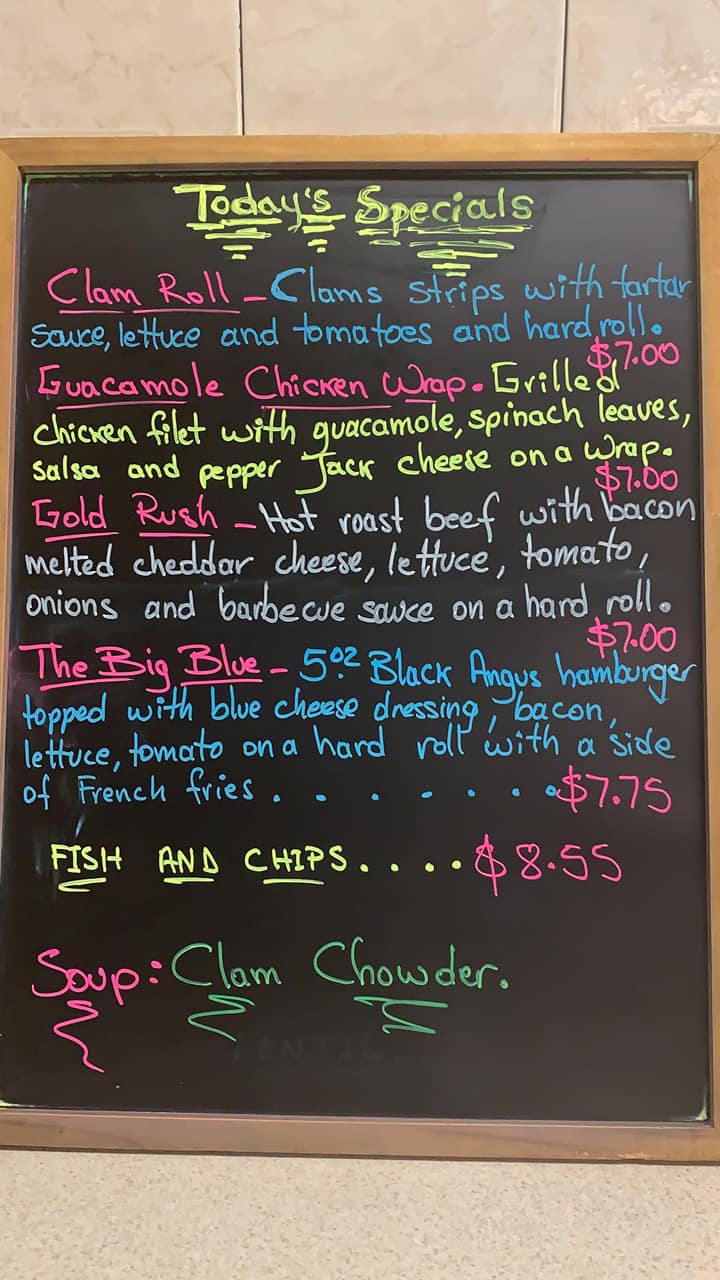 Today's Specials
Clam Roll - Clams strips with tartar
sauce, lettuce and tomatoes and hard roll.
$7.00
Guacamole Chicken Wrap. Grilled
chicken filet with guacamole, spinach leaves,
salsa and pepper Jack cheese on a wrap.
$7.00
Gold Rush - Hot roast beef with bacon
melted cheddar cheese, lettuce, tomato,
onions and barbecue sauce on a hard roll.
$7.00
The Big Blue - 5oz Black Angus hamburger
topped with blue cheese dressing, bacon,
lettuce, tomato on a hard roll with a side
of French fries . . . . . . . $7.75
FISH AND CHIPS. . . . . $8.55
Soup: Clam Chowder.